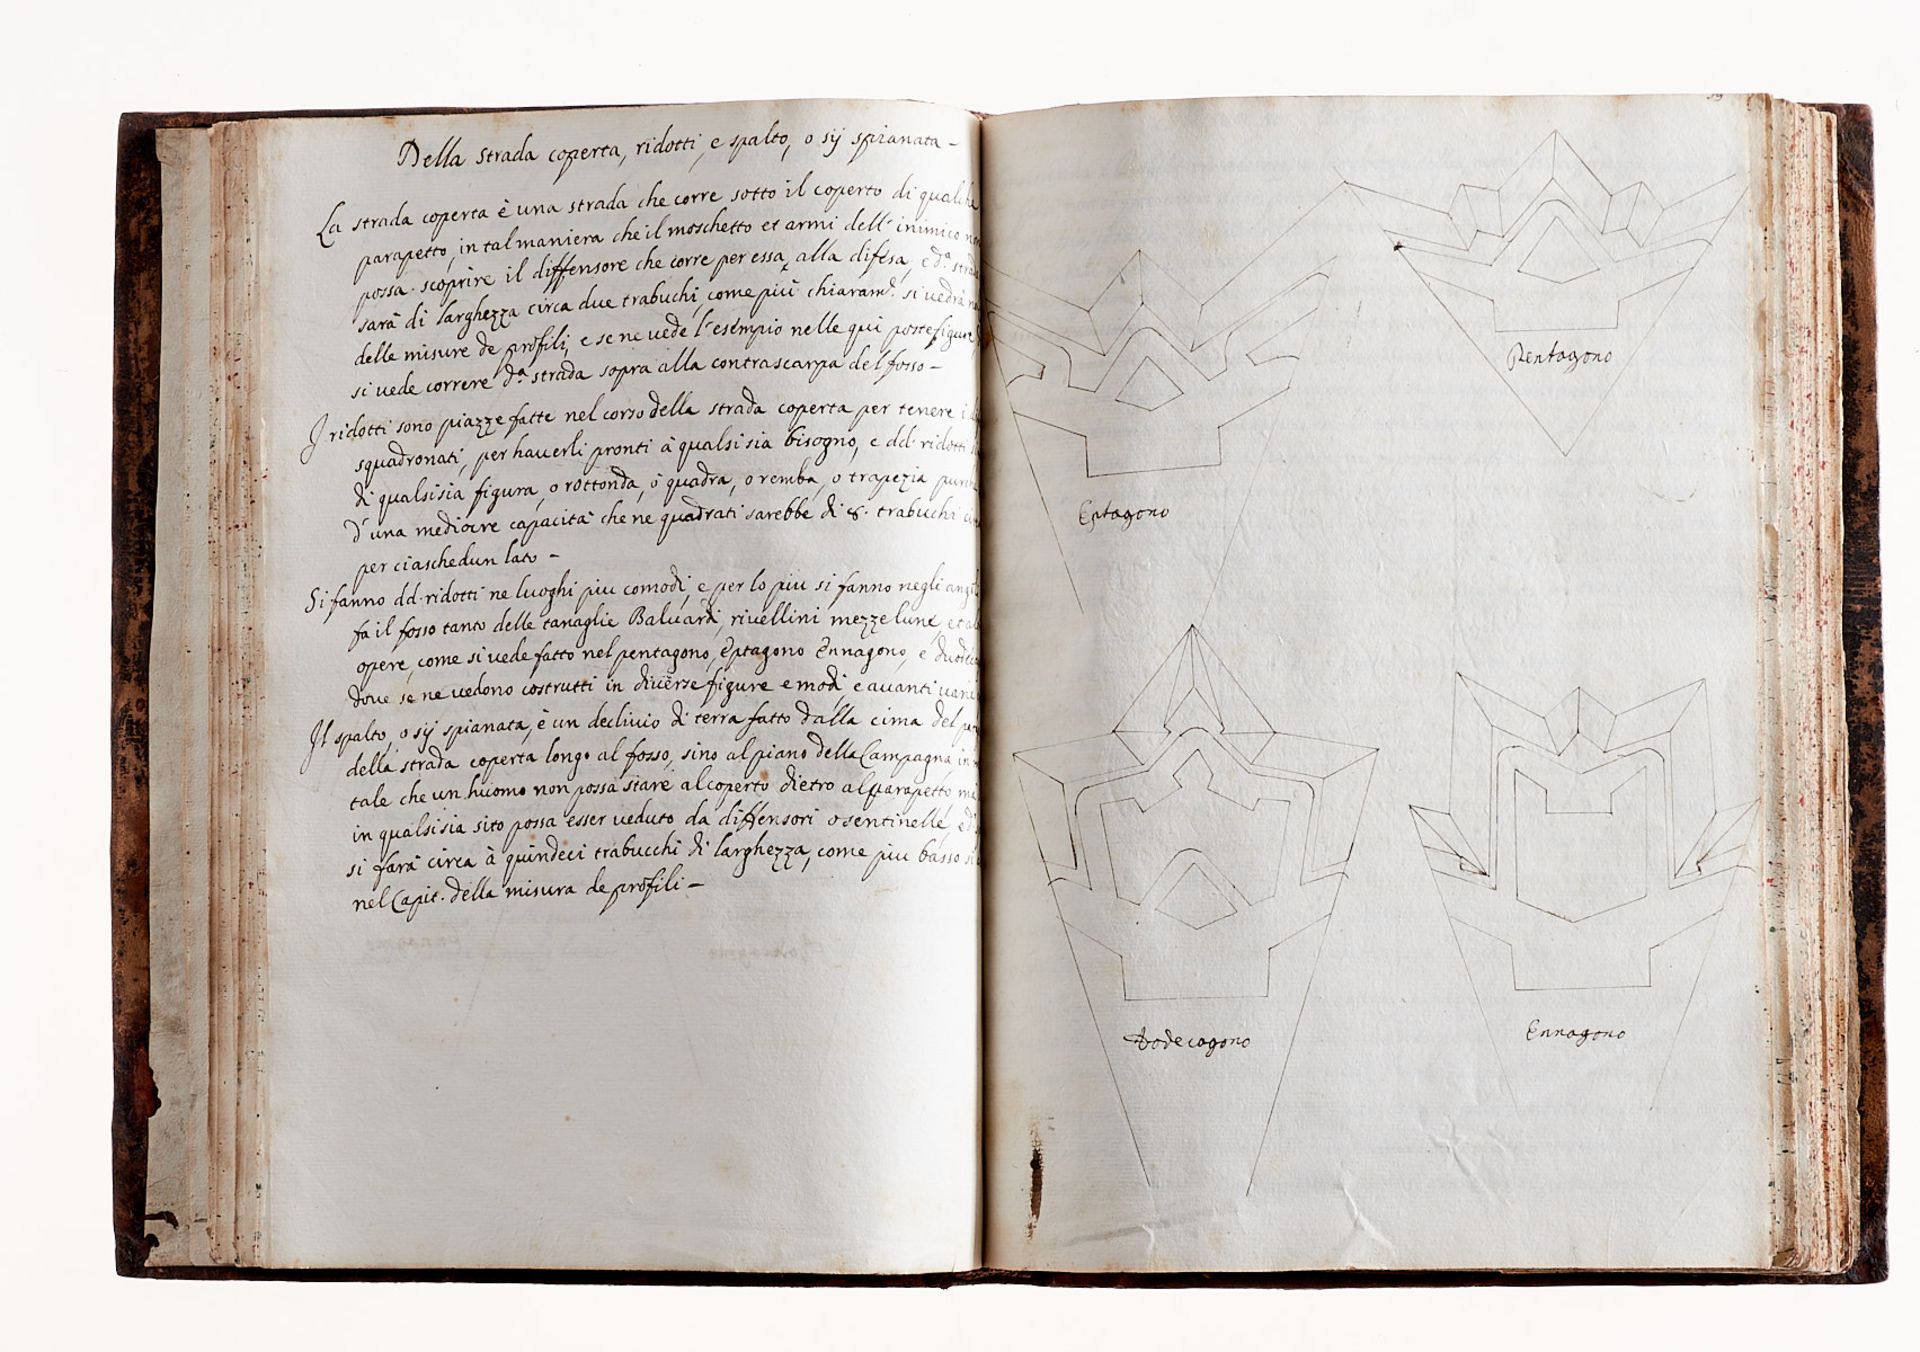 Della strada coperta, ridotti, e spalto, o sij spianata -
La strada coperta è una strada che corre sotto il coperto di qualche
parapetto, in tal maniera che il moschetto et armi dell' inimico
possa scoprire il diffensore che corre per essa, alla difesa, e d.ª strada
sarà di larghezza circa due trabuchi, come più chiaram.e si vedrà
delle misure de profili, e se ne vede l'esempio nelle qui poste figure,
si vede correre d.ª strada sopra alla contrascarpa del fosso -
J ridotti sono piazze fatte nel corso della strada coperta per tenere i
squadronati, per hauerli pronti à qualsisia bisogno, e dd. ridotti
di qualsisia figura, o rottonda, o quadra, o remba, o trapezia
d'una mediocre capacità che ne quadrati sarebbe di 8. trabuchi
per ciaschedun lato -
Si fanno dd. ridotti ne luoghi piu comodi, e per lo piu si fanno negli
fa il fosso tanto delle tanaglie Baluardi, riuellini mezze lune,
opere, come si vede fatto nel pentagono, Eptagono Ennagono, e
doue se ne vedono costrutti in diuerse figure e modi, e auanti
Jl spalto, o sij spianata, è un decliuio di terra fatto dalla cima del
della strada coperta longo al fosso, sino al piano della Campagna in
tale che un huomo non possa stare al coperto dietro al parapetto
in qualsisia sito possa esser ueduto da diffensori o sentinelle,
si farà circa à quindeci trabucchi di larghezza, come piu basso
nel Capit. della misura de profili -
59
Pentagono
Eptagono
Dodecagono
Ennagono